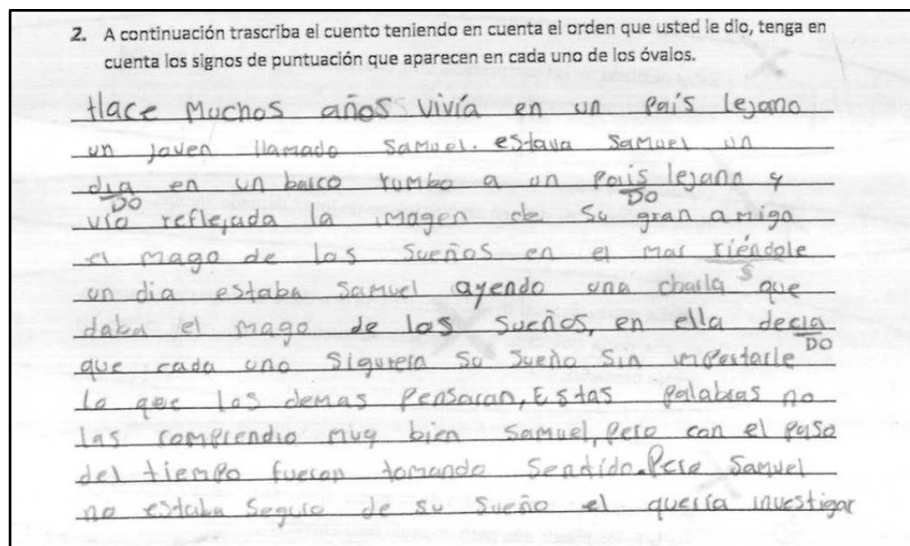 2. A continuación trascriba el cuento teniendo en cuenta el orden que usted le dio, tenga en
cuenta los signos de puntuación que aparecen en cada uno de los óvalos.
Hace Muchos años vivía en un País lejano
un joven llamado Samuel. estava Samuel un
dia en un barco rumbo a un Pais lejano y
DO DO
vio reflejada la imagen de su gran amigo
el mago de los sueños en el mar riéndole
S
un dia estaba Samuel oyendo una charla que
daba el mago de los Sueños, en ella decia
DO
que cada uno siguiera su sueño sin importarle
lo que los demas Pensaran, Estas palabras no
las comprendio muy bien Samuel, pero con el paso
del tiempo fueron tomando Sentido. Pero Samuel
no estaba Seguro de su sueño el quería investigar